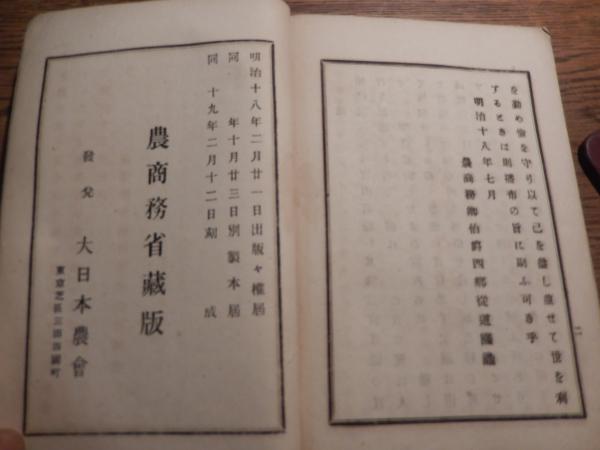 を勤め儉を守り以て己を益し並せて世を利
するときは則頒布の旨に副ふ可き乎
明治十八年七月
農商務卿伯爵西鄕從道國識
二
明治十八年二月廿一日出版々權屆
同 年十月廿三日別製本屆
同 十九年二月十二日刻成
農商務省藏版
發兌 大日本農會
東京芝區三田四國町